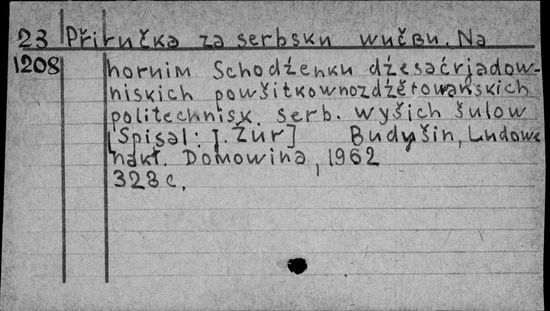 23 Přiručka za serbsku wučbu. Na
1208 hornim Schodźenku dźesaćrjadow-
niskich powšitkownozdźěłowańskich
politechnisk. serb. wyšich šulow
[Spisal: J. Žur] Budyšin, Ludowe
nakł. Domowina, 1962
328 c.